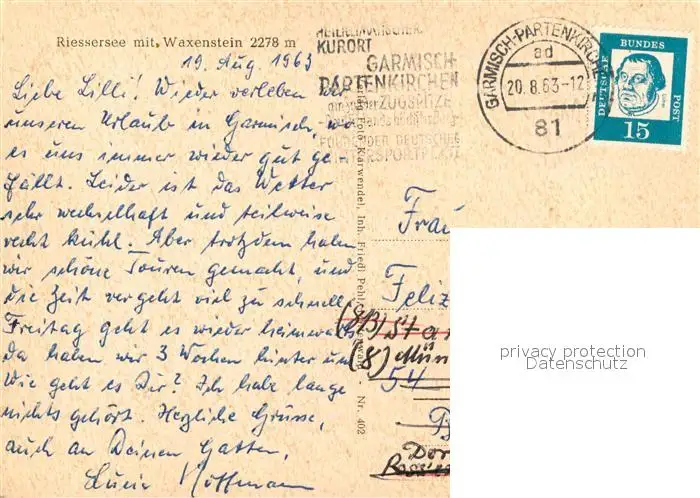 Riessersee mit Waxenstein 2278 m
19. Aug. 1963
Liebe Lilli! Wieder verleben wir
unseren Urlaub in Garmisch, wo
es uns immer wieder gut ge-
fällt. Leider ist das Wetter
sehr wechselhaft und teilweise
recht kühl. Aber trotzdem haben
wir schöne Touren gemacht, und
die Zeit vergeht viel zu schnell.
Freitag geht es wieder heimwärts
da haben wir 3 Wochen hinter uns
Wie geht es Dir? Ich habe lange
nichts gehört. Herzliche Grüsse,
auch an Deinen Gatten,
Lucie Hoffmann
HEILKLIMATISCHER
KURORT
GARMISCH-
PARTENKIRCHEN
ZUGSPITZE
DER DEUTSCHEN
GARMISCH-PARTENKIRCHEN
ad
20.8.63-12
81
DEUTSCHE BUNDESPOST
15
Verlag Foto Karwendel, Inh. Friedl Pehl
Nr. 402
Frau
Feliz
(13b) Sta
(8) Mün
54
Dor
privacy protection
Datenschutz